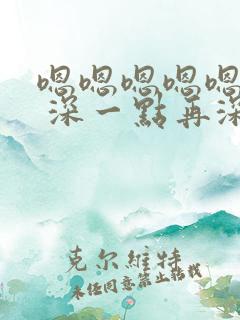 嗯嗯嗯嗯嗯
深一點再深
克尔維特
未经同意禁止转载